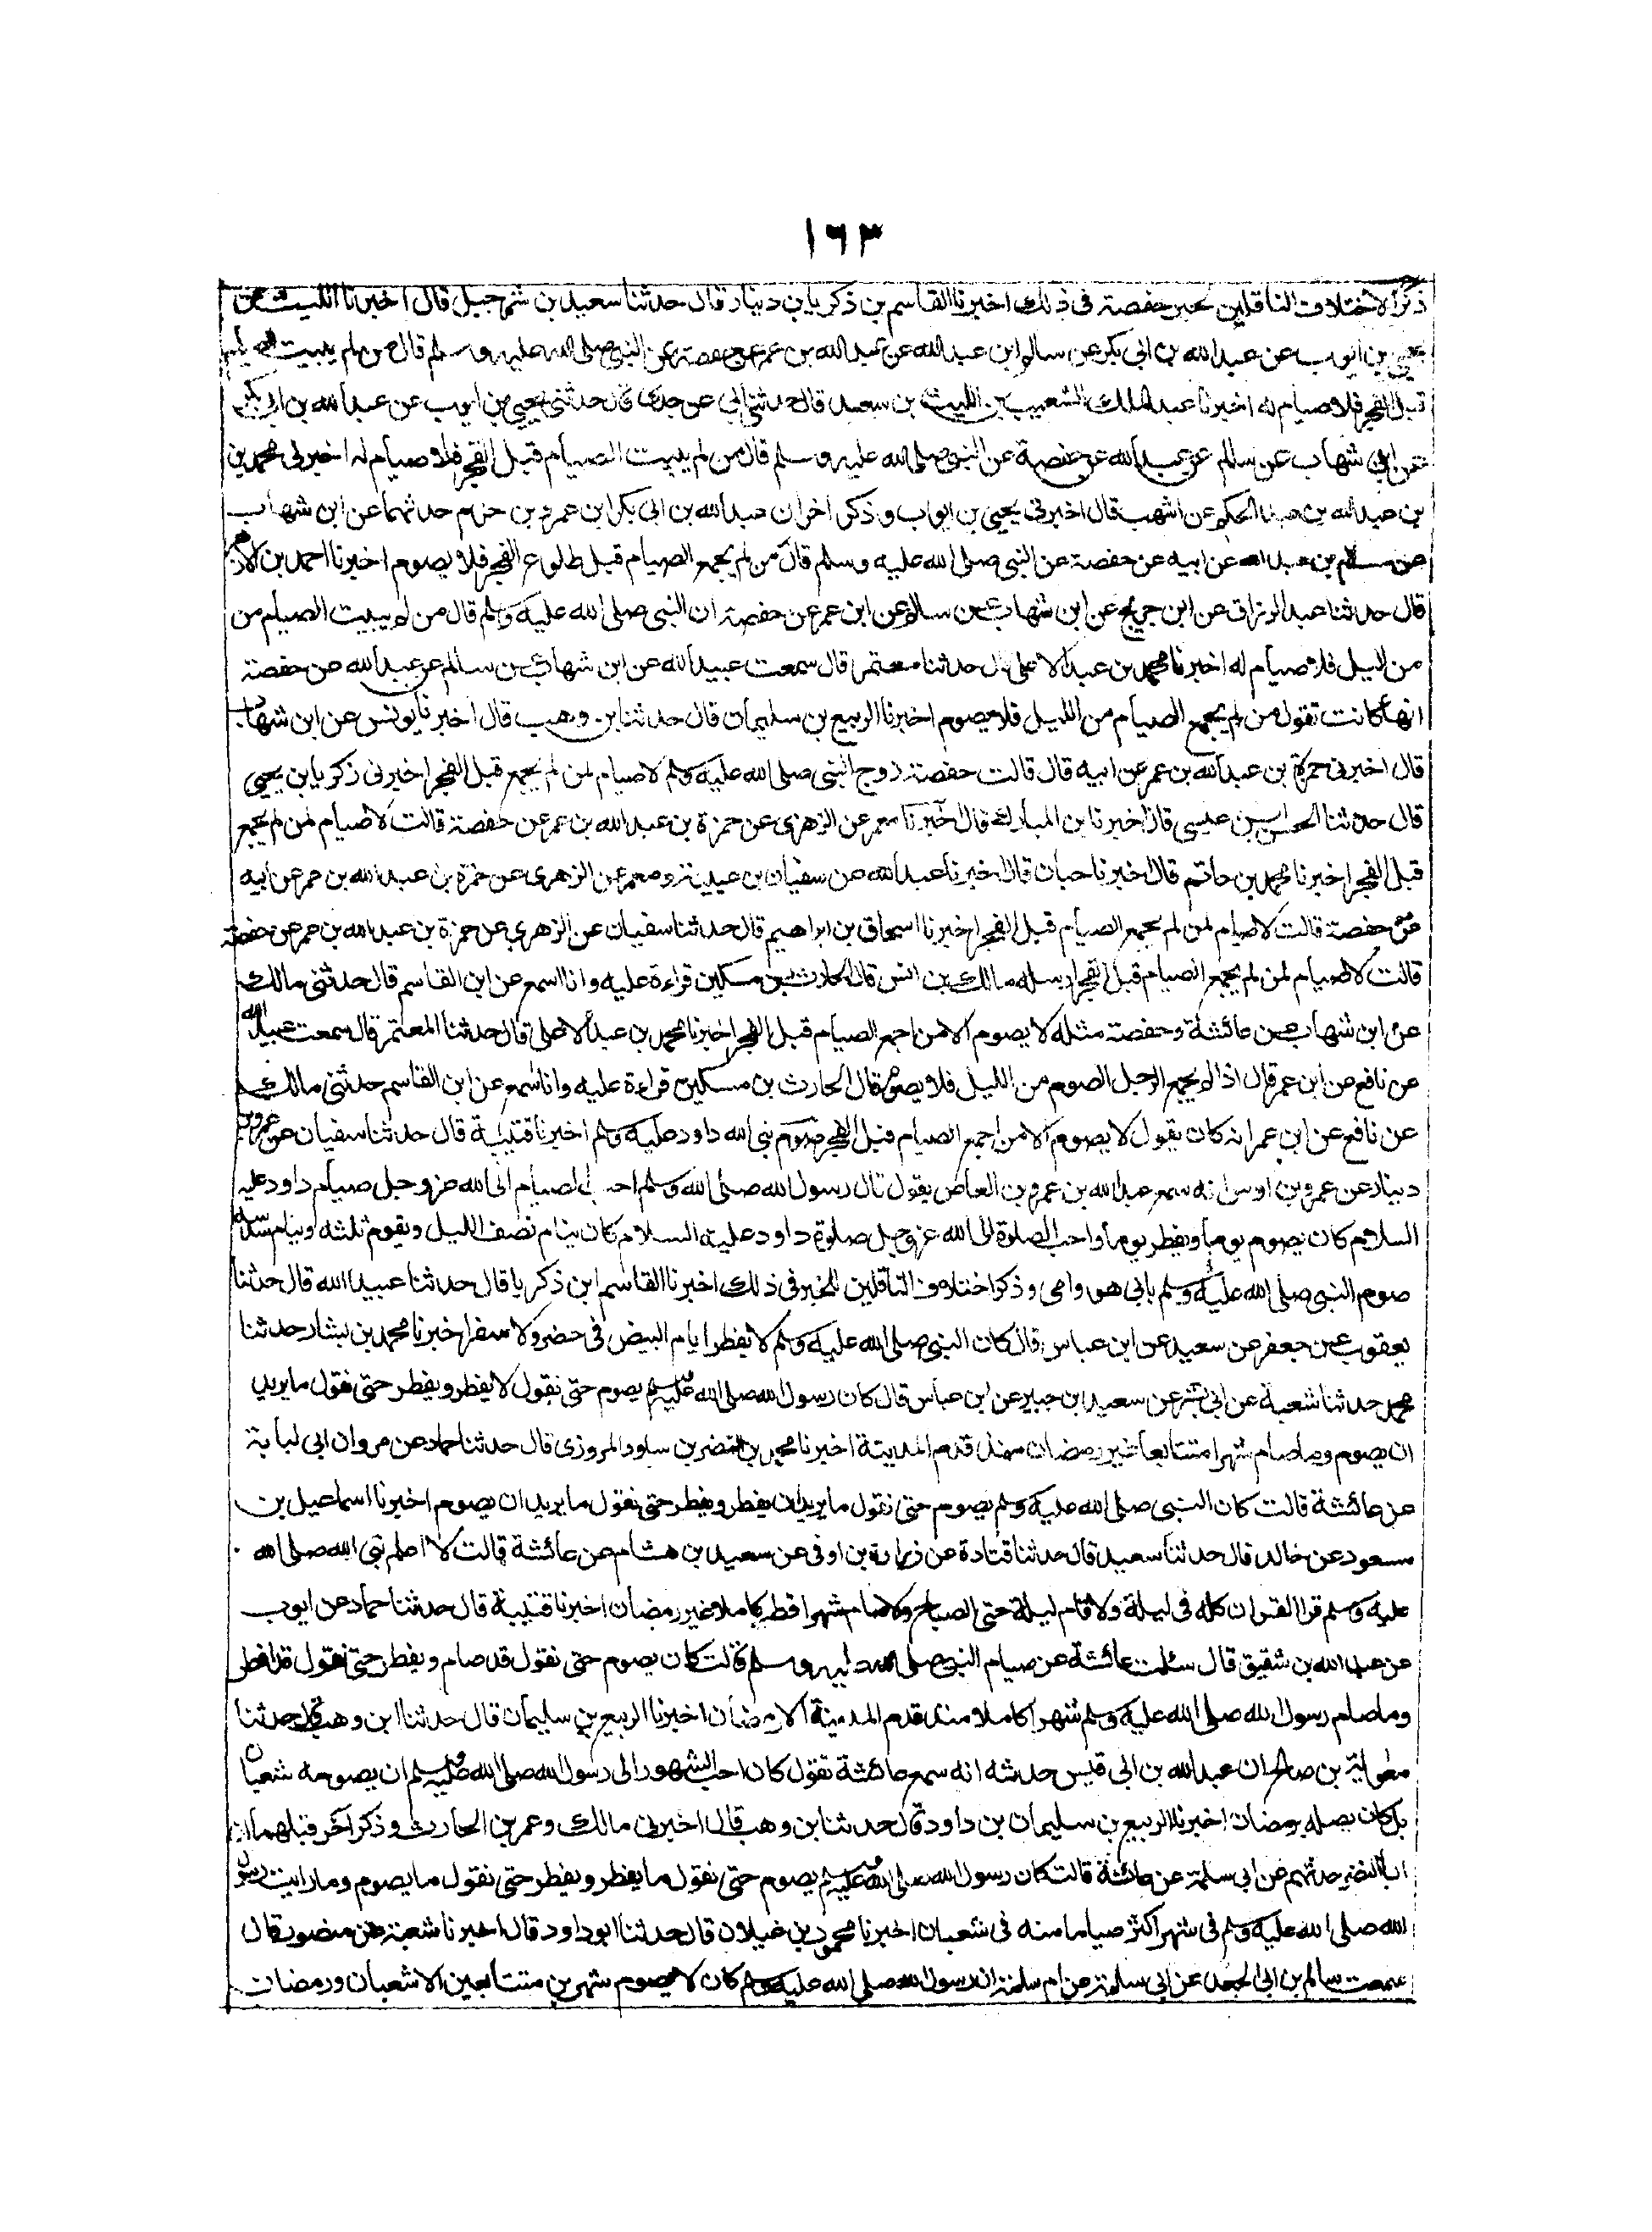 ١٦٣
ذكر الاختلاف الناقلين لخبر حفصة فى ذلك اخبرنا القاسم بن ذكريا بن دينار قال حدثنا سعيد بن شرحبيل قال اخبرنا الليث عن
يحيى بن ايوب عن عبد الله بن ابى بكر عن سالم ابن عبد الله عن عبد الله بن عمر عن حفصة عن النبى صلى الله عليه وسلم قال من لم يبيت
قبل الفجر فلا صيام له اخبرنا عبد الملك الشعيب بن الليث بن سعد قال حدثنى ابى عن جدى قال حدثنى يحيى بن ايوب عن عبد الله بن ابى بكر
عن ابن شهاب عن سالم عن عبد الله عن حفصة عن النبى صلى الله عليه وسلم قال من لم يبيت الصيام قبل الفجر فلا صيام له اخبرنى محمد بن
بن عبد الله بن عبد الحكم عن اشهب قال اخبرنى يحيى بن ايواب وذكر اخران عبد الله بن ابى بكر ابن عمرو بن حزم حدثهما عن ابن شهاب
عن سالم بن عبد الله عن ابيه عن حفصة عن النبى صلى الله عليه وسلم قال من لم يجمع الصيام قبل طلوع الفجر فلا يصوم اخبرنا احمد بن الازهر
قال حدثنا عبد الرزاق عن ابن جريج عن ابن شهاب عن سالم عن ابن عمر عن حفصة ان النبى صلى الله عليه وسلم قال من لم يبيت الصيام من
من الليل فلا صيام له اخبرنا محمد بن عبد الاعلى قال حدثنا معتمر قال سمعت عبيد الله عن ابن شهاب عن سالم عن عبد الله عن حفصة
انها كانت تقول من لم يجمع الصيام من الليل فلا يصوم اخبرنا الربيع بن سليمان قال حدثنا بن وهب قال اخبرنا يونس عن ابن شهاب
قال اخبرنى حمزة بن عبد الله بن عمر عن ابيه قال قالت حفصة زوج النبى صلى الله عليه وسلم لا صيام لمن لم يجمع قبل الفجر اخبرنى ذكريا بن يحيى
قال حدثنا الحسن بن عيسى قال اخبرنا بن المبارك قال اخبرنا معمر عن الزهرى عن حمزة بن عبد الله بن عمر عن حفصة قالت لا صيام لمن لم يجمع
قبل الفجر اخبرنا محمد بن حاتم قال اخبرنا حبان قال اخبرنا عبد الله عن سفيان بن عيينة ومعمر عن الزهرى عن حمزة بن عبد الله بن عمر عن ابيه
عن حفصة قالت لا صيام لمن لم يجمع الصيام قبل الفجر اخبرنا اسحاق بن ابراهيم قال حدثنا سفيان عن الزهرى عن حمزة بن عبد الله بن عمر عن حفصة
قالت لا صيام لمن لم يجمع الصيام قبل الفجر ارسله مالك بن انس قال الحارث بن مسكين قراءة عليه وانا اسمع عن ابن القاسم قال حدثنى مالك
عن ابن شهاب عن عائشة وحفصة مثله لا يصوم الا من اجمع الصيام قبل الفجر اخبرنا محمد بن عبد الاعلى قال حدثنا المعتمر قال سمعت عبيد الله
عن نافع عن ابن عمر قال اذا لم يجمع الرجل الصوم من الليل فلا يصوم قال الحارث بن مسكين قراءة عليه وانا اسمع عن ابن القاسم حدثنى مالك
عن نافع عن ابن عمر انه كان يقول لا يصوم الا من اجمع الصيام قبل الفجر صوم نبى الله داود عليه وسلم اخبرنا قتيبة قال حدثنا سفيان عن عمرو بن
دينار عن عمرو بن اوس انه سمع عبد الله بن عمرو بن العاص يقول قال رسول الله صلى الله وسلم احب الصيام الى الله عز وجل صيام داود عليه
السلام كان يصوم يوما ويفطر يوما واحب الصلوة الى الله عز وجل صلوة داود عليه السلام كان ينام نصف الليل ويقوم ثلثه وينام سدسه
صوم النبى صلى الله عليه وسلم بابى هو وامى وذكر اختلاف الناقلين للخبر فى ذلك اخبرنا القاسم ابن ذكريا قال حدثنا عبيد الله قال حدثنا
يعقوب عن جعفر عن سعيد عن ابن عباس قال كان النبى صلى الله عليه وسلم لا يفطر ايام البيض فى حضر ولا سفر اخبرنا محمد بن بشار حدثنا
محمد حدثنا شعبة عن ابى بشر عن سعيد بن جبير عن ابن عباس قال كان رسول الله صلى الله عليه وسلم يصوم حتى نقول لا يفطر ويفطر حتى نقول ما يريد
ان يصوم وما صام شهرا متتابعا غير رمضان منذ قدم المدينة اخبرنا محمد بن النضر بن سلود المروزى قال حدثنا حماد عن مروان ابى لبابة
عن عائشة قالت كان النبى صلى الله عليه وسلم يصوم حتى نقول ما يريد ان يفطر ويفطر حتى نقول ما يريد ان يصوم اخبرنا اسماعيل بن
مسعود عن خالد قال حدثنا سعيد قال حدثنا قتادة عن زرارة بن اوفى عن سعيد بن هشام عن عائشة قالت لا اعلم نبى الله صلى الله
عليه وسلم قرا القران كله فى ليلة ولا قام ليلة حتى الصباح ولا صام شهرا قط كاملا غير رمضان اخبرنا قتيبة قال حدثنا حماد عن ايوب
عن عبد الله بن شقيق قال سئلت عائشة عن صيام النبى صلى الله عليه وسلم قالت كان يصوم حتى نقول قد صام ويفطر حتى نقول قد افطر
وما صام رسول الله صلى الله عليه وسلم شهرا كاملا منذ قدم المدينة الا رمضان اخبرنا الربيع بن سليمان قال حدثنا ابن وهب قال حدثنا
معوية بن صالح ان عبد الله بن ابى قيس حدثه انه سمع عائشة تقول كان احب الشهور الى رسول الله صلى الله عليه وسلم ان يصومه شعبان
بل كان يصله برمضان اخبرنا الربيع بن سليمان بن داود قال حدثنا بن وهب قال اخبرنى مالك وعمر بن الحارث وذكر آخر قبلهما ان
ابا النضر حدثهم عن ابى سلمة عن عائشة قالت كان رسول الله صلى الله عليه وسلم يصوم حتى نقول ما يفطر ويفطر حتى نقول ما يصوم وما رايت رسول
الله صلى الله عليه وسلم فى شهر اكثر صياما منه فى شعبان اخبرنا محمود بن غيلان قال حدثنا ابو داود قال اخبرنا شعبة عن منصور قال
سمعت سالم بن ابى الجعد عن ابى سلمة عن ام سلمة ان رسول الله صلى الله عليه وسلم كان لا يصوم شهرين متتابعين الا شعبان ورمضان